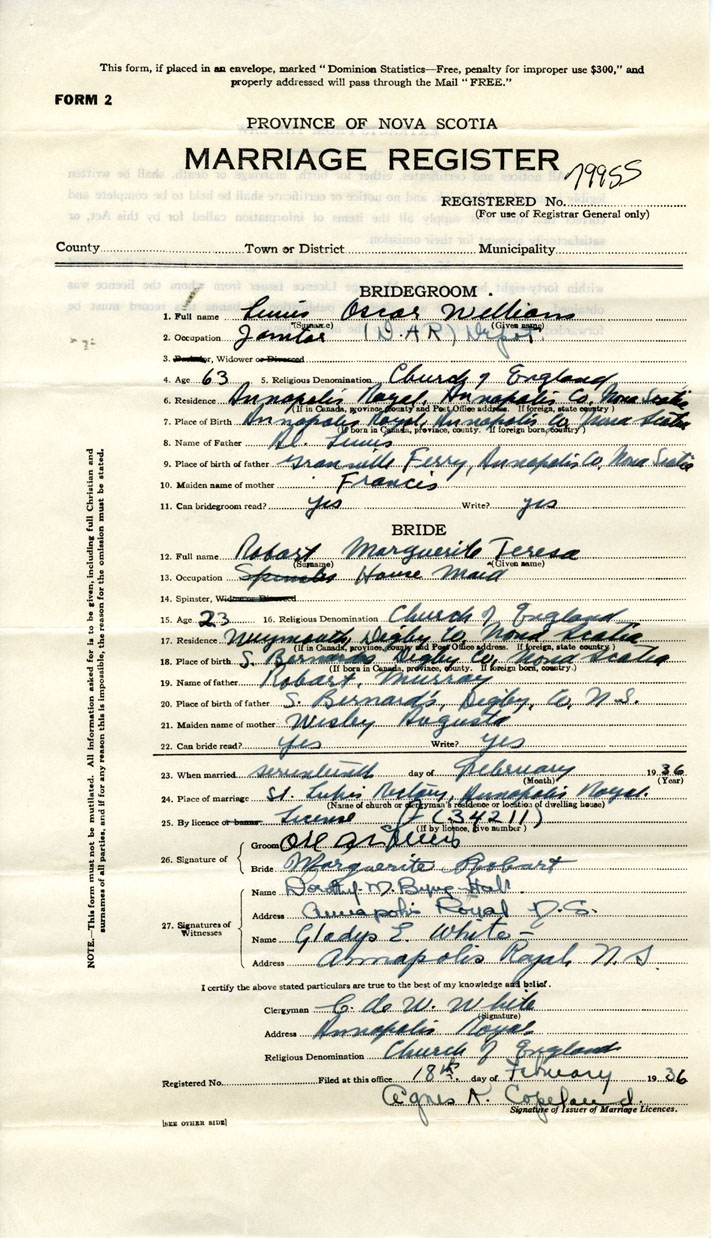 This form, if placed in an envelope, marked "Dominion Statistics—Free, penalty for improper use $300," and
properly addressed will pass through the Mail "FREE."
FORM 2
PROVINCE OF NOVA SCOTIA
MARRIAGE REGISTER
79955
REGISTERED No.
(For use of Registrar General only)
County Town or District Municipality
BRIDEGROOM
1. Full name Lewis Oscar William
(Surname) (Given name)
2. Occupation Janitor (D.A.R) Depot
3. Bachelor, Widower or Divorced
4. Age 63 5. Religious Denomination Church of England
6. Residence Annapolis Royal, Annapolis Co, Nova Scotia
(If in Canada, province, county and Post Office address. If foreign, state country)
7. Place of Birth Annapolis Royal, Annapolis Co Nova Scotia
(If born in Canada, province, county. If foreign born, country)
8. Name of Father Lewis
9. Place of birth of father Granville Ferry, Annapolis Co, Nova Scotia
10. Maiden name of mother Francis
11. Can bridegroom read? yes Write? yes
BRIDE
12. Full name Robart Marguerite Teresa
(Surname) (Given name)
13. Occupation Spinster House Maid
14. Spinster, Widow or Divorced
15. Age 23 16. Religious Denomination Church of England
17. Residence Weymouth, Digby Co, Nova Scotia
(If in Canada, province, county and Post Office address. If foreign, state country.)
18. Place of birth S. Bernards Digby Co, Nova Scotia
(If born in Canada, province, county. If foreign born, country.)
19. Name of father Robart, Murray
20. Place of birth of father S. Bernard's, Digby, Co, N.S.
21. Maiden name of mother Wisley Augusta
22. Can bride read? yes Write? yes
23. When married seventeenth day of February 1936
(Month) (Year)
24. Place of marriage St. Luke's Rectory, Annapolis Royal.
(Name of church or clergyman's residence or location of dwelling house)
25. By licence or banns License (34211)
(If by licence, give number)
26. Signature of
Groom Lewis
Bride Marguerite Robart
27. Signatures of Witnesses
Name Dorothy M. Byng-Hall
Address Annapolis Royal N.S.
Name Gladys E. White
Address Annapolis Royal, N.S.
I certify the above stated particulars are true to the best of my knowledge and belief.
Clergyman C. de W. White
(Signature)
Address Annapolis Royal
Religious Denomination Church of England
Registered No. Filed at this office 18th day of February 1936
Agnes K. Copeland
Signature of Issuer of Marriage Licences.
[SEE OTHER SIDE]
NOTE.—This form must not be mutilated. All information asked for is to be given, including full Christian and
surnames of all parties, and if for any reason this is impossible, the reason for the omission must be stated.